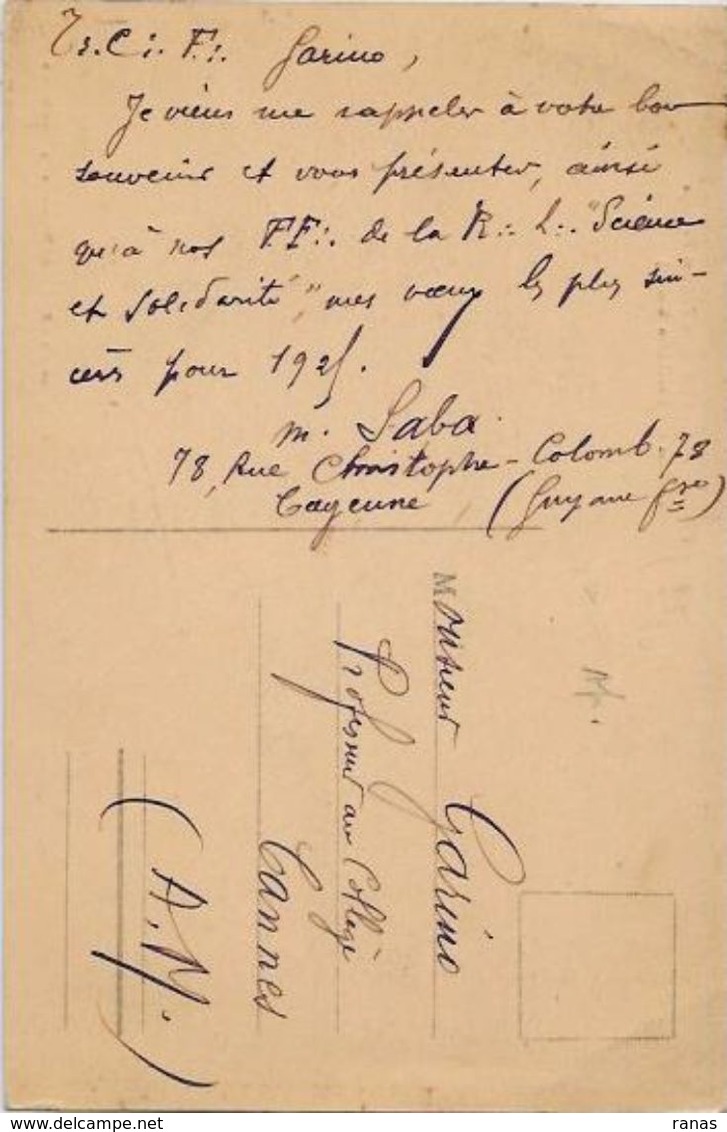 Tr∴ C∴ F∴ Garino,
Je viens me rappeler à votre bon
souvenir et vous présenter, ainsi
qu'à nos FF∴ de la R∴ L∴ "Science
et Solidarité", mes vœux les plus sin-
cères pour 1925.
M. Saba
78, Rue Christophe-Colomb. 78
Cayenne (Guyane frse)
Monsieur Garino
Professeur au Collège
Cannes
(A.M.)
ranas